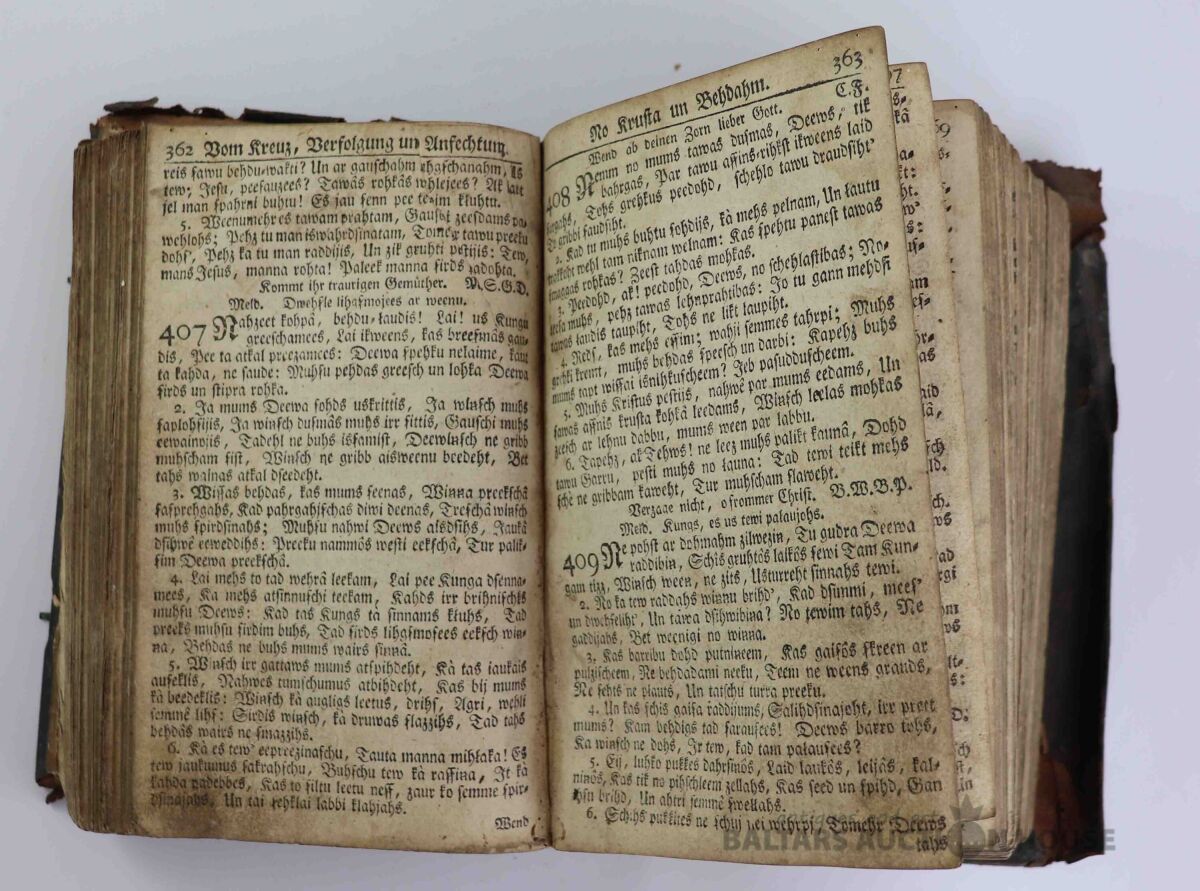 362 Vom Kreuz, Verfolgung un Anfechtun
reis sawu behdu-wakti? Un ar gauschahm
tew; Jesu, peesauzees? Tawâs rohkâs whlejees?
jel man spahrni buhtu! Es jau senn pee kluhtu.
5. Weenumehr es tawam prahtam, zeesdams
wehlohs; Pehz tu man Tomehr tawu preeku
dohs, Pehz ka tu man raddijis, Un zik gruhti pestijis; Tew,
mans Jesus, manna rohta! Paleek manna sirds
Kommt ihr traurigen Gemüther. M.S.G.D.
Meld. Dwehsle lihgsmojees ar weenu.
407 Nahzeet kohpâ, behdu-laudis! Lai! us Kungu
greeschamees, Lai ikweens, kas breesmâs gau-
dis, Pee ta atkal preezamees: Deewa spehku nelaime, kaut
ta kahda, ne saude: Muhsu pehdas greesch un lohka Deewa
sirds un stipra rohka.
2. Ja mums Deewa sohds uskrittis, Ja winsch muhs
saplohsijis, Ja winsch dusmâs muhs irr sittis, Gauschi muhs
eewainojis, Tadehl ne buhs issamist, Deewinsch ne gribb
muhscham sist, Winsch ne gribb aisweenu beedeht, Bet
tahs wainas atkal dseedeht.
3. Wissas behdas, kas mums seenas, Winna preekschâ
sasprehgahs, Kad pahrgahjschas diwi deenas, Treschâ winsch
muhs spirdsinahs: Muhsu nahwi Deews aisdsihs, Jaukâ
dsihwê eeweddihs: Preeku nammôs westi eekschâ, Tur palik-
sim Deewa preekschâ.
4. Lai mehs to tad wehrâ leekam, Lai pee Kunga dsenna-
mees, Ka mehs atsinnuschi teekam, Kahds irr brihnischks
muhsu Deews: Kad tas Kungs ta sinnams kluhs, Tad
preeks muhsu sirdim buhs, Tad sirds lihgsmosees eeksch win-
na, Behdas ne buhs mums wairs sinnâ.
5. Winsch irr gattaws mums atspihdeht, Kà tas jaukais
auseklis, Nahwes tumschumus atbihdeht, Kas bij mums
kà beedeklis: Winsch kà augligs leetus, drihs, Agri, wehli
semmê lihs: Sirdis winsch, kà druwas slazzihs, Tad tahs
behdâs wairs ne smazzihs.
6. Kà es tew' eepreezinaschu, Tauta manna mihlaka! Es
tew jaukumus sakrahschu, Buhschu tew kà rassina, It kà
lahda padebbes, Kas to siltu leetu ness, zaur ko semme spir-
dsinajahs, Un tai rehklai labbi klahjahs.
Wend
No Krusta un Behdahm. 363
Wend ab deinen Zorn lieber Gott. C.F.
408 Nemm no mums tawas dusmas, Deews, tik
bahrgas, Par tawas assins-rihkst ikweens laid
Tohs grehkus peedohd, schehlo tawu draudsiht'
To gribbi saudsiht.
2. Kad tu muhs buhtu sohdijs, kà mehs pelnam, Un lautu
wehl tam niknam welnam: Kas spehtu panest tawas
rohkas? Zeest tahdas mohkas.
3. Peedohd, ak! peedohd, Deews, no schehlastibas; No-
muhs, pehz tawas lehnprahtibas: Jo tu gann mehdsi
tawas laudis taupiht, Tohs ne likt laupiht.
4. Reds, kas mehs essim; wahji semmes tahrpi; Muhs
grehki kremt, muhs behdas speesch un darbi: Kapehz buhs
mums tapt wissai isnihkuscheem? Jeb pasudduscheem.
5. Muhs Kristus pestijs, nahwê par mums eedams, Un
sawas assnis krusta kohkâ leedams, Winsch leelas mohkas
zeesch ar lehnu dabbu, mums ween par labbu.
6. Tapehz, ak Tehws! ne leez muhs palikt kaunâ, Dohd
tawu Garru, pesti muhs no launa: Tad tewi teikt mehs
schê ne gribbam kaweht, Tur muhscham slaweht.
Verzage nicht, o frommer Christ. B.W.B.P.
Meld. Kungs, es us tewi palaujohs.
409 Ne pohst ar dohmahm zilwezin, Tu gudra Deewa
raddibin, Schis gruhtôs laikôs sewi Tam Kun-
gam tizz, Winsch ween, ne zits, Usturreht sinnahs tewi.
2. No ka tew raddahs winnu brihd', Kad dsimmi, mees'
un dwehselit', Un tawa dsihwibina? No tewim tahs, Ne
gaddijahs, Bet weenigi no winna.
3. Kas barribu dohd putnineem, Kas gaisôs skreen ar
pulzischeem, Ne behdadami neeku, Teem ne weens grauds,
Ne sehts ne plauts, Un tatschu turra preeku.
4. Un kas schis gaisa raddijums, Salihdsinajoht, irr prett
mums? Kam behdigs tad sarausees! Deews barro tohs,
Ka winsch ne dohs, Ir tew, kad tam palausees?
5. Eij, luhko pukkes dahrsinôs, Laid laukôs, leijâs, kal-
ninôs, Kas tik no pihschleem zellahs, Kas seed un spihd, Gan
ihsu brihd, Un ahtri semmê swellahs.
6. Schihs pukkites ne schuj nei wehrpj Tomehr Deews
tahs
BALTARS AUCTION HOUSE